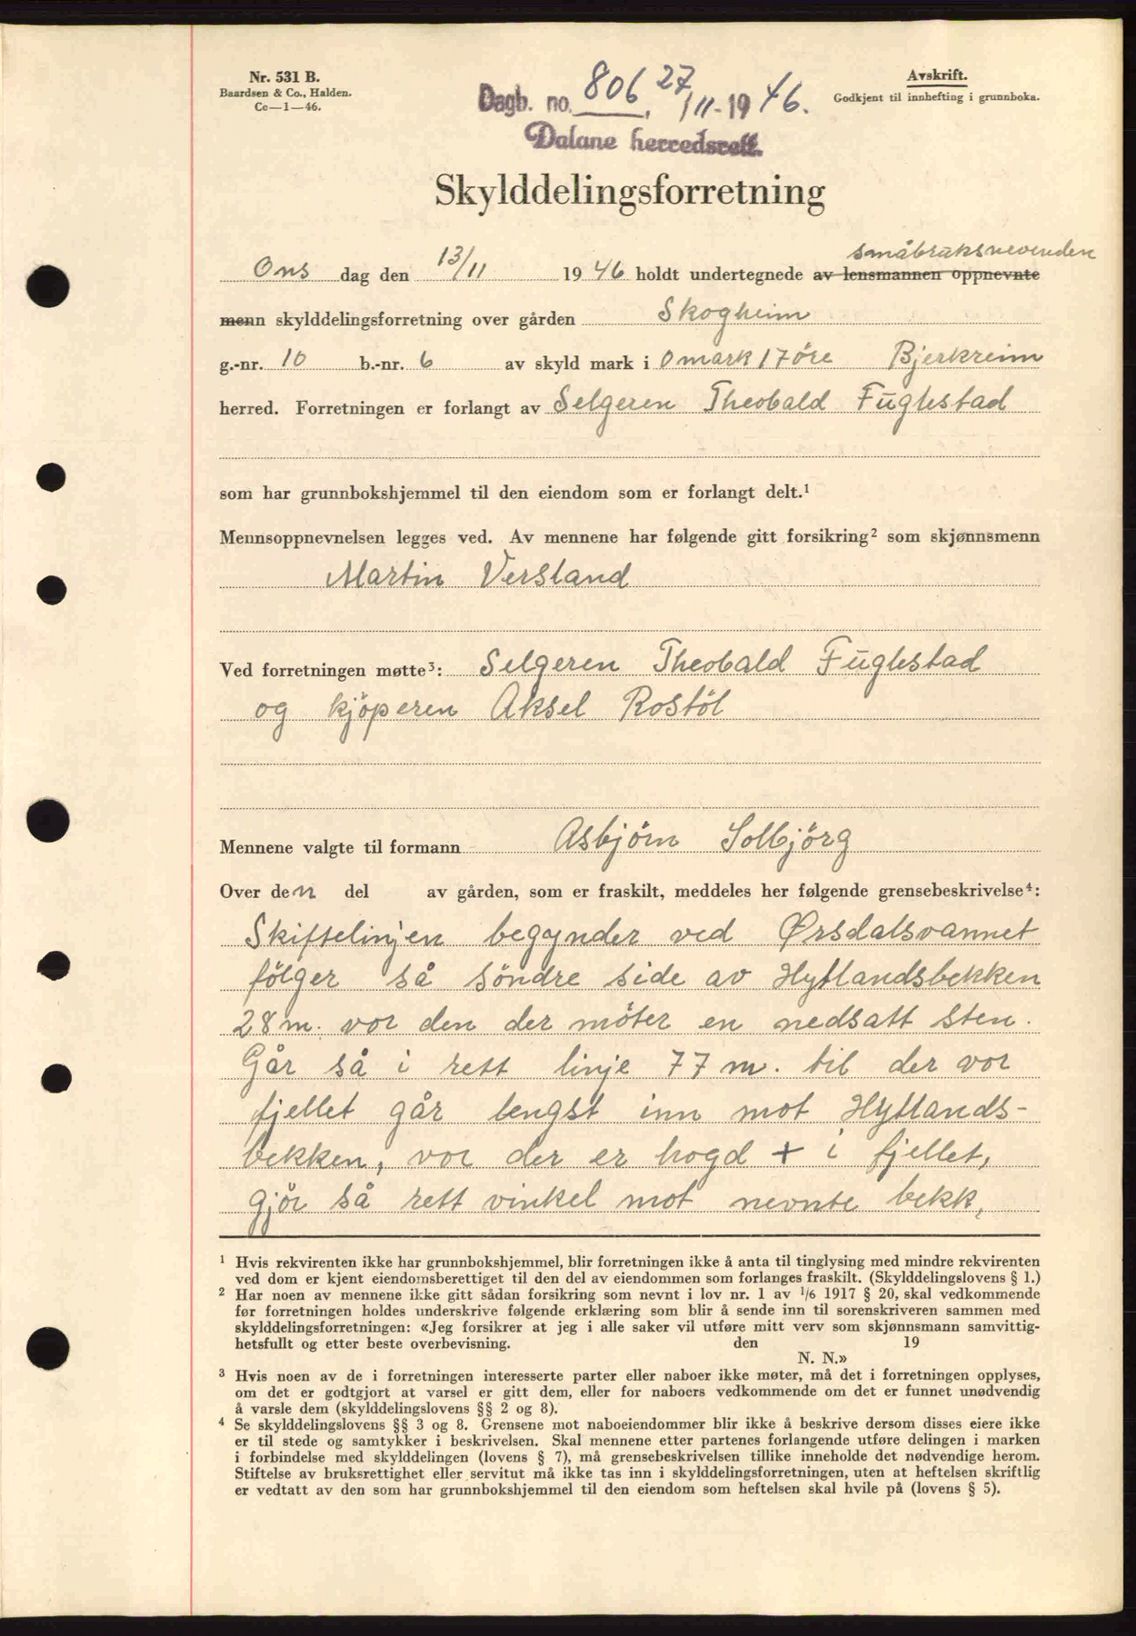 Nr. 531 B.
Baardsen & Co., Halden.
Cc—1—46.
Dagb. no. 806, 27/11-1946.
Dalane herredsrett.
Avskrift.
Godkjent til innhefting i grunnboka.
Skylddelingsforretning
småbruksnevnden
Ons dag den 13/11 1946 holdt undertegnede av lensmannen oppnevnte
menn skylddelingsforretning over gården Skogheim
g.-nr. 10 b.-nr. 6 av skyld mark i 0 mark 17 öre Bjerkreim
herred. Forretningen er forlangt av Selgeren Theobald Fuglestad
som har grunnbokshjemmel til den eiendom som er forlangt delt.¹
Mennsoppnevnelsen legges ved. Av mennene har følgende gitt forsikring² som skjønnsmenn
Martin Versland
Ved forretningen møtte³: Selgeren Theobald Fuglestad
og kjöperen Aksel Rostöl
Mennene valgte til formann Asbjörn Solbjörg
Over den del av gården, som er fraskilt, meddeles her følgende grensebeskrivelse⁴:
Skiftelinjen begynder ved Ørsdalsvannet
fölger så söndre side av Hytlandsbekken
28 m. vor den der möter en nedsatt sten.
Går så i rett linje 77 m. til der vor
fjellet går lengst inn mot Hytlands-
bekken, vor der er hogd + i fjellet,
gjör så rett vinkel mot nevnte bekk,
¹ Hvis rekvirenten ikke har grunnbokshjemmel, blir forretningen ikke å anta til tinglysing med mindre rekvirenten
ved dom er kjent eiendomsberettiget til den del av eiendommen som forlanges fraskilt. (Skylddelingslovens § 1.)
² Har noen av mennene ikke gitt sådan forsikring som nevnt i lov nr. 1 av 1/6 1917 § 20, skal vedkommende
før forretningen holdes underskrive følgende erklæring som blir å sende inn til sorenskriveren sammen med
skylddelingsforretningen: «Jeg forsikrer at jeg i alle saker vil utføre mitt verv som skjønnsmann samvittig-
hetsfullt og etter beste overbevisning. den 19
N. N.»
³ Hvis noen av de i forretningen interesserte parter eller naboer ikke møter, må det i forretningen opplyses,
om det er godtgjort at varsel er gitt dem, eller for naboers vedkommende om det er funnet unødvendig
å varsle dem (skylddelingslovens §§ 2 og 8).
⁴ Se skylddelingslovens §§ 3 og 8. Grensene mot naboeiendommer blir ikke å beskrive dersom disses eiere ikke
er til stede og samtykker i beskrivelsen. Skal mennene etter partenes forlangende utføre delingen i marken
i forbindelse med skylddelingen (lovens § 7), må grensebeskrivelsen tillike inneholde det nødvendige herom.
Stiftelse av bruksrettighet eller servitut må ikke tas inn i skylddelingsforretningen, uten at heftelsen skriftlig
er vedtatt av den som har grunnbokshjemmel til den eiendom som heftelsen skal hvile på (lovens § 5).